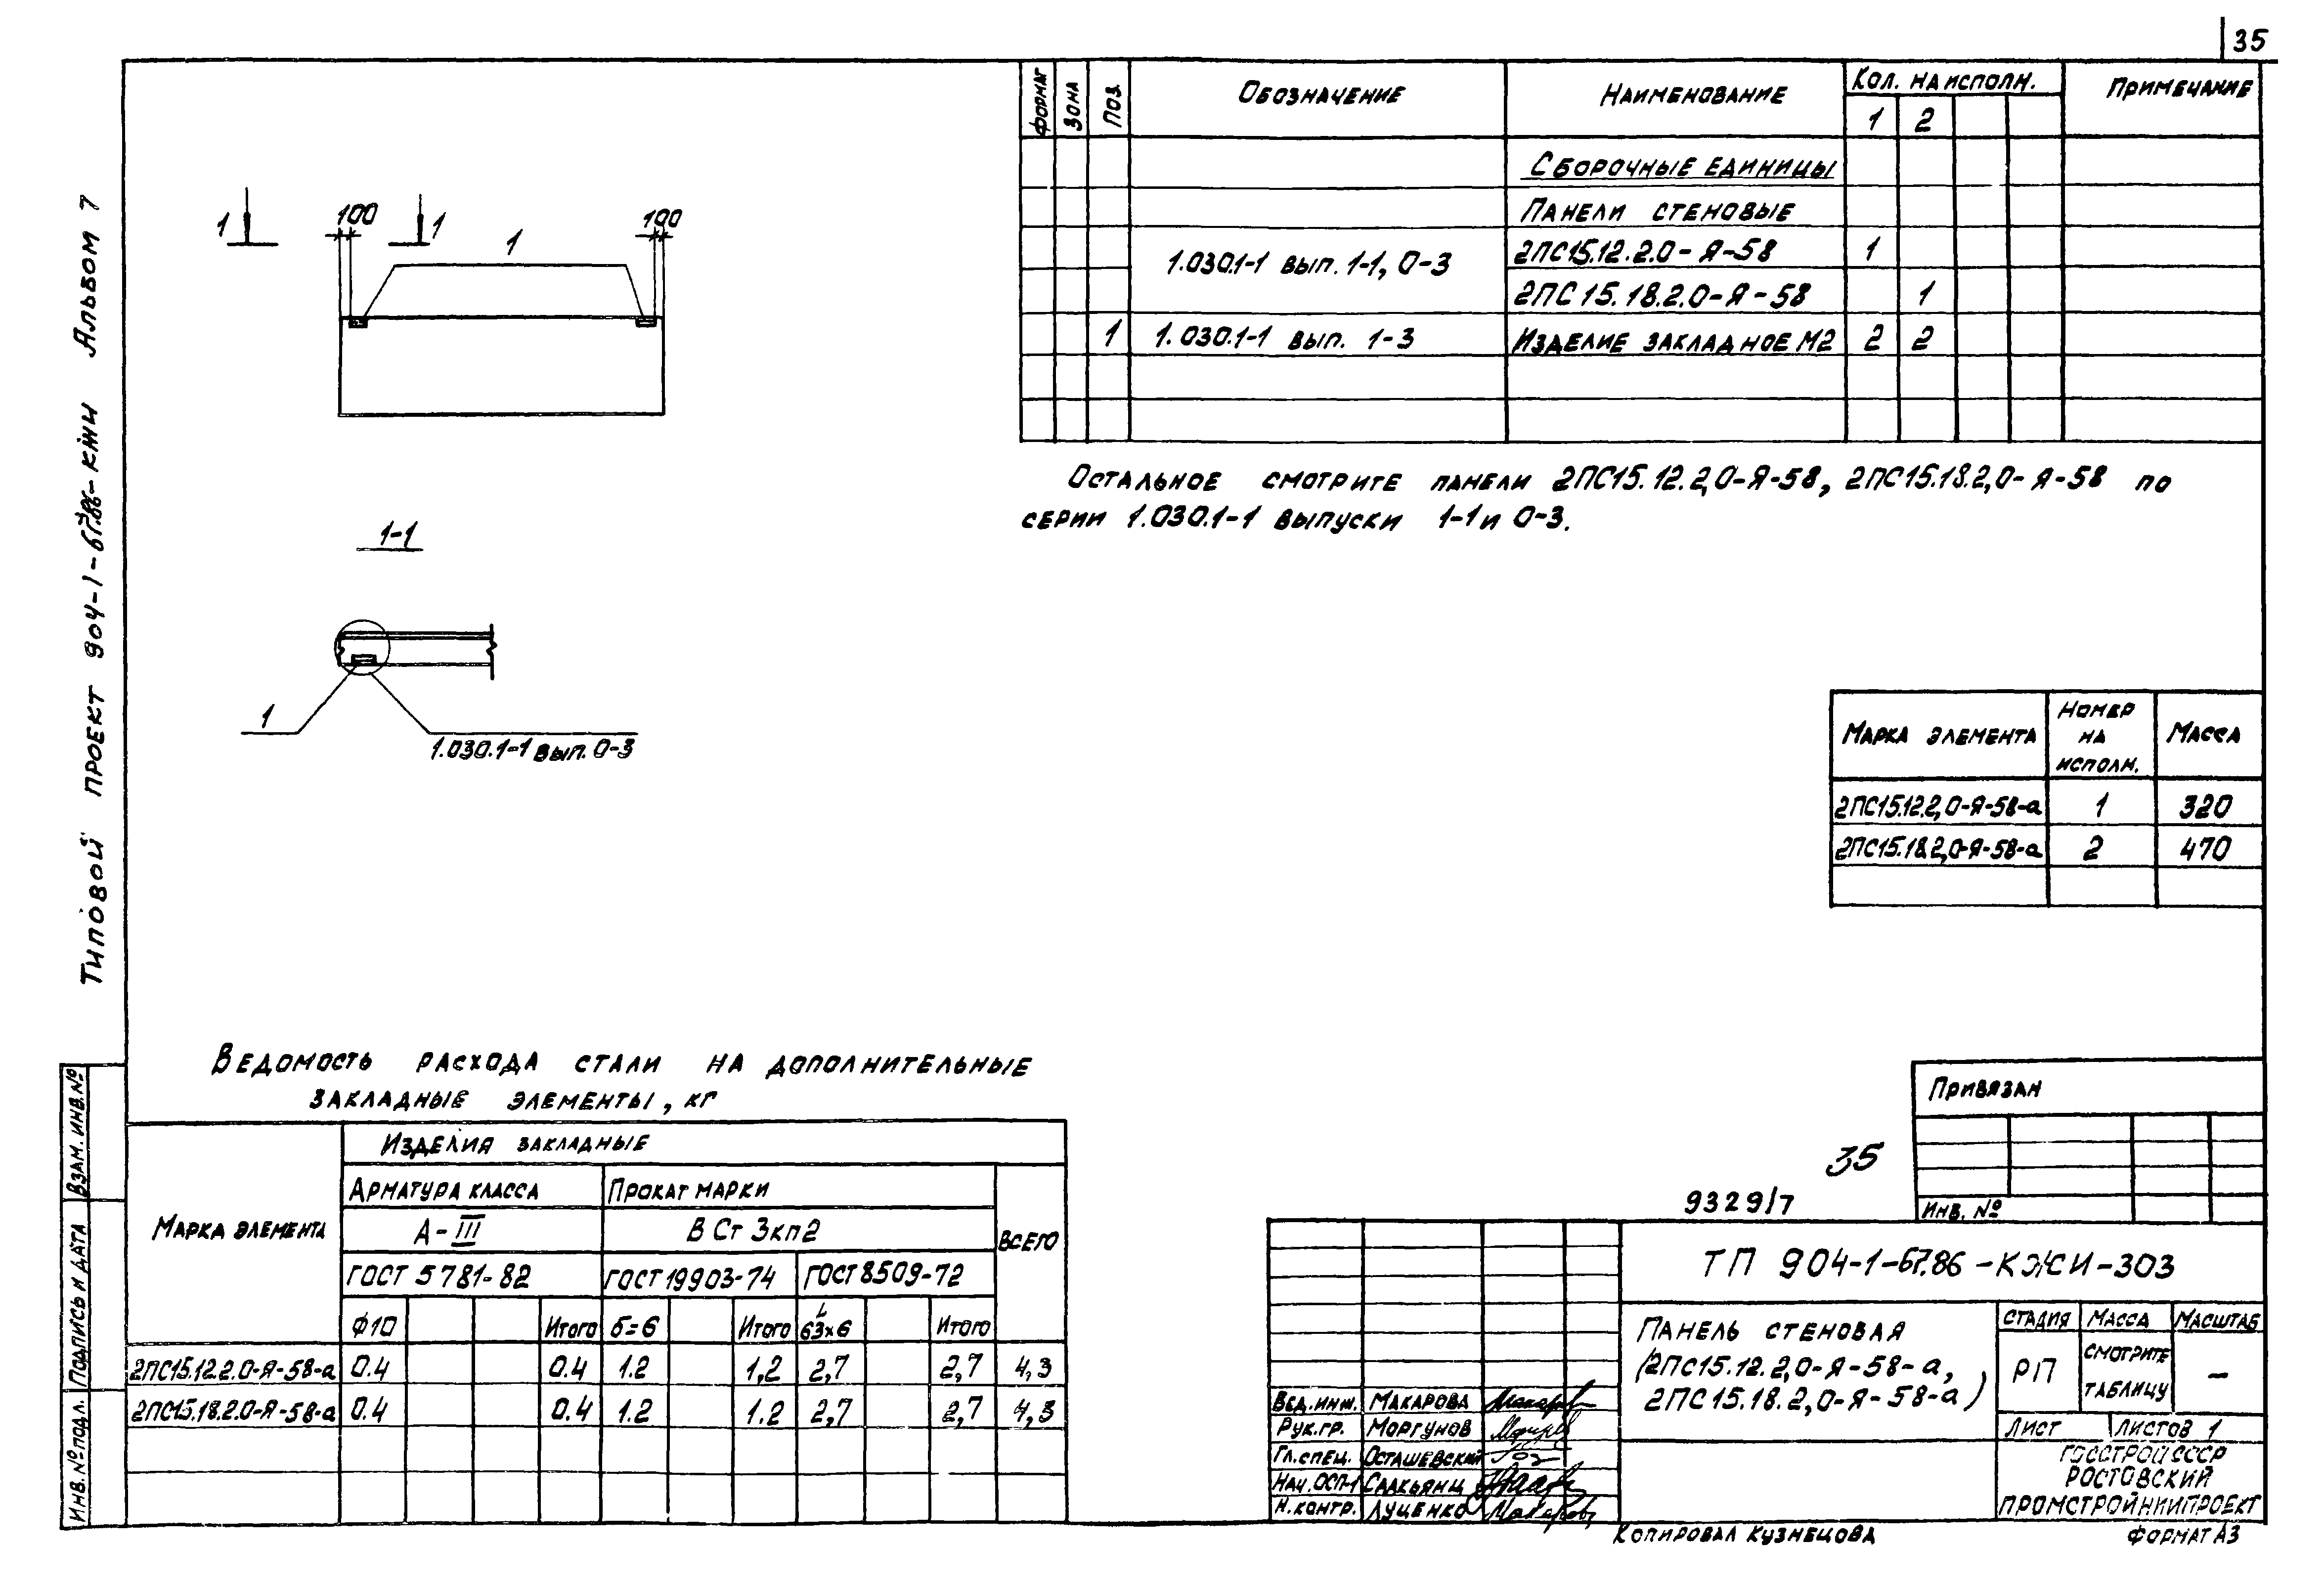 35
Типовой проект 904-1-67.86-КЖИ Альбом 7
1 1
100 100
1
1-1
1
1.030.1-1 вып. 0-3
Формат Зона Поз. Обозначение Наименование Кол. на исполн. Примечание
1 2
Сборочные единицы
Панели стеновые
1.030.1-1 вып. 1-1, 0-3
2ПС15.12.2.0-Я-58 1
2ПС15.18.2.0-Я-58 1
1 1.030.1-1 вып. 1-3 Изделие закладное М2 2 2
Остальное смотрите панели 2ПС15.12.2,0-Я-58, 2ПС15.18.2,0-Я-58 по
серии 1.030.1-1 выпуски 1-1 и 0-3.
Марка элемента Номер на исполн. Масса
2ПС15.12.2,0-Я-58-а 1 320
2ПС15.18.2,0-Я-58-а 2 470
Ведомость расхода стали на дополнительные
закладные элементы, кг
Марка элемента Изделия закладные
Арматура класса Прокат марки Всего
А-III В Ст 3кп2
ГОСТ 5781-82 ГОСТ 19903-74 ГОСТ 8509-72
Ф10 Итого б=6 Итого L 63х6 Итого
2ПС15.12.2.0-Я-58-а 0.4 0.4 1.2 1,2 2,7 2,7 4,3
2ПС15.18.2.0-Я-58-а 0.4 0.4 1.2 1.2 2,7 2,7 4,3
Взам. инв. №
Подпись и дата
Инв. № подл.
Привязан
Инв. №
35
9329/7
ТП 904-1-67.86-КЖИ-303
Панель стеновая
(2ПС15.12.2,0-Я-58-а,
2ПС15.18.2,0-Я-58-а)
Стадия Масса Масштаб
РП смотрите таблицу –
Лист Листов 1
Госстрой СССР
Ростовский
Промстройниипроект
Вед.инж. Макарова
Рук.гр. Моргунов
Гл.спец. Осташевский
Нач.ОСП-1 Саакьянц
Н.контр. Луценко
Копировал Кузнецова
Формат А3